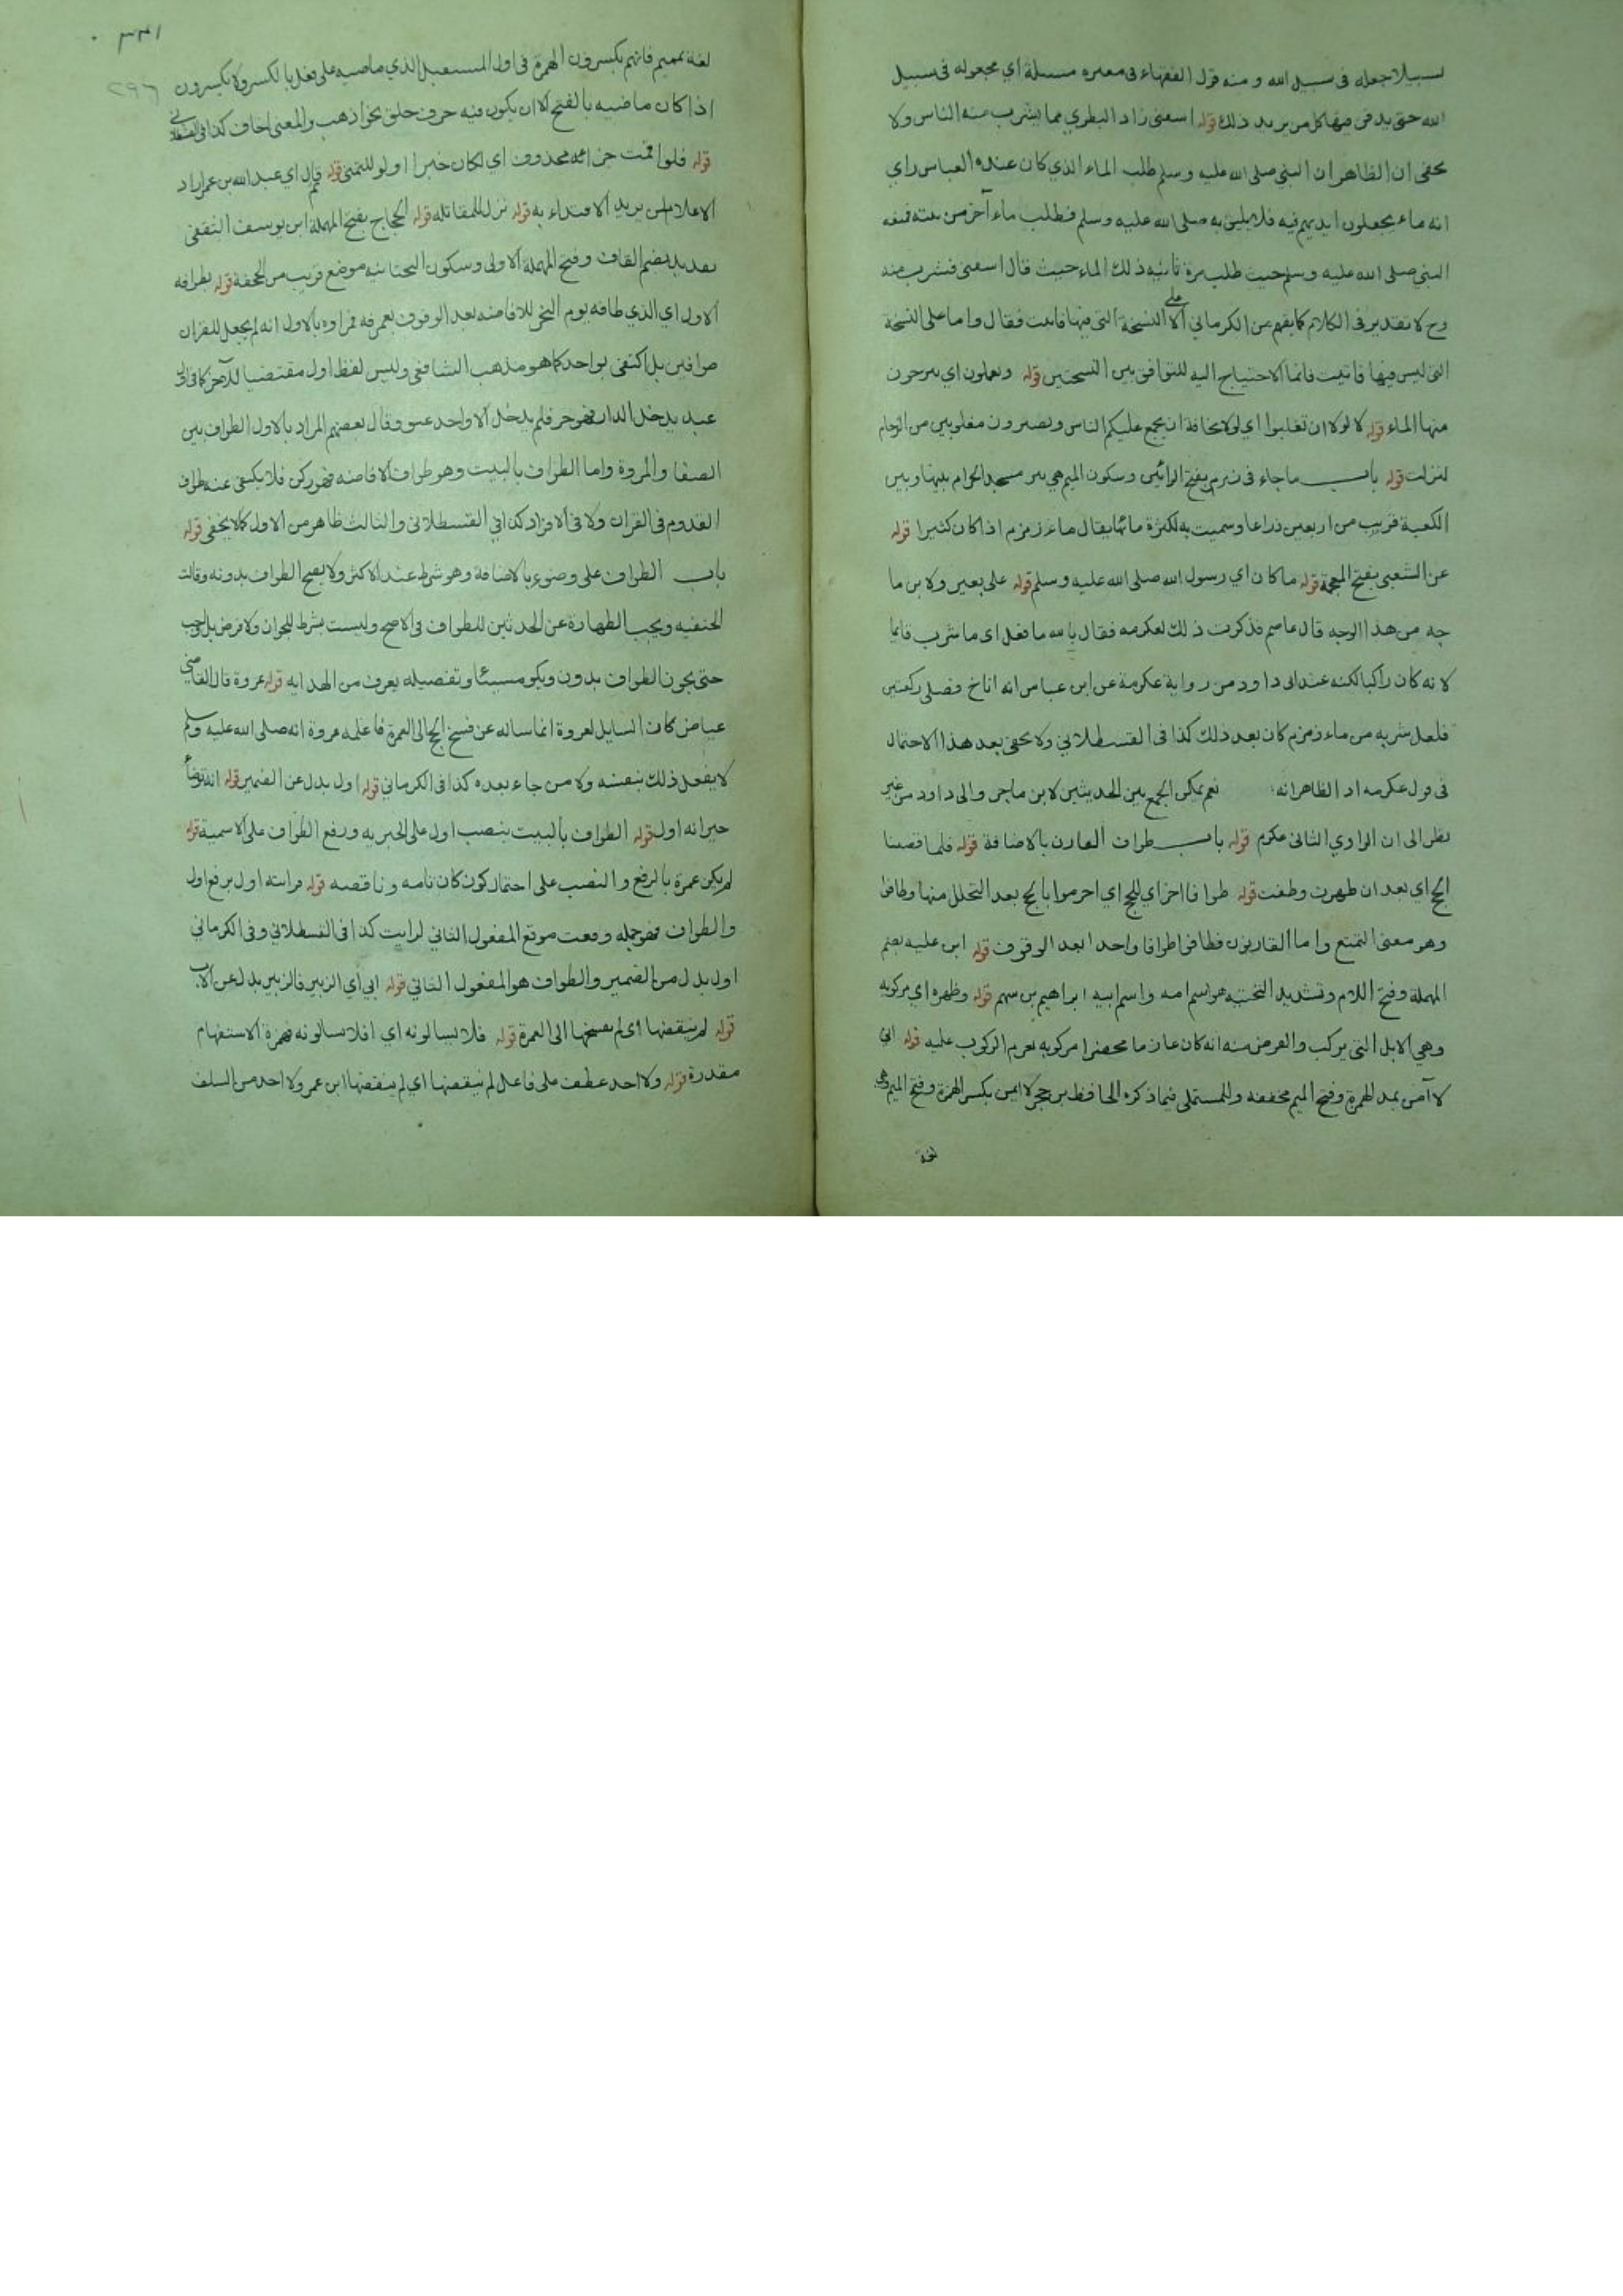 لسبيلا جعله فى سبيل الله و منه قول الفقهاء فى معبره مسبلة اي مجعوله فى سبيل
الله حتى يدفن فيها كل من يريد ذلك قوله اسقنى زاد الطبري مما يشرب منه الناس ولا
يخفى ان الظاهر ان النبي صلى الله عليه وسلم طلب الماء الذي كان عنده العباس راي
انه ماء يجعلون ايديهم فيه فلا يليق به صلى الله عليه وسلم فطلب ماء آخر من بيته فنبه
النبي صلى الله عليه وسلم حيث طلب مرة ثانيه ذلك الماء حيث قال اسقنى فشرب منه
وح لا تقدير فى الكلام كما يفهم من الكرماني الا على النسخة التى فيها فاتيت فقال واما على النسخة
التى ليس فيها فاتيت فانما الاحتياج اليه للتوافق بين النسختين قوله ويعملون اي ينزحون
منها الماء قوله لا لولا ان تغلبوا اي لولا مخافة ان يجمع عليكم الناس وتصيرون مغلوبين من الزحام
لنزلت قوله باب ما جاء فى زمزم بفتح الزائين وسكون الميم هي بير مسجد الحرام بينها وبين
الكعبة قريب من اربعين ذراعا وسميت به لكثرة مائها يقال ماء زمزم اذا كان كثيرا قوله
عن الشعبى بفتح المعجمة قوله ما كان اي رسول الله صلى الله عليه وسلم قوله على بعير ولابن ما
جه من هذا الوجه قال عاصم فذكرت ذلك لعكرمه فقال بالله ما فعل اى ما شرب قايما
لانه كان راكبا لكنه عند ابى داود من رواية عكرمة عن ابن عباس انه اناخ فصلى ركعتين
فلعل شربه من ماء زمزم كان بعد ذلك كذا فى القسطلاني ولا يخفى بعد هذا الاحتمال
فى قول عكرمه اذ الظاهر انه نعم يمكن الجمع بين الحديثين لابن ماجى والى داود من غير
نظر الى ان الراوي الثانى عكرم قوله باب طواف القارن بالاضافة قوله فلما قضينا
الحج اي بعد ان طهرت وطفت قوله طوافا اخر اي للحج اي احرموا بالحج بعد التحلل منها وطافوا
وهو معنى التمتع واما القارنون فطافوا طوافا واحدا بعد الوقوف قوله ابن عليه بضم
المهملة وفتح اللام وتشديد التحتيه هو اسم امه واسم ابيه ابراهيم بن سهم قوله وظهره اي مركوبه
وهي الابل التى يركب والغرض منه انه كان عازما محضرا مركوبه لعزم الركوب عليه قوله انى
لا آمن بمد الهمزة وفتح الميم مخففه وللمستملى فيما ذكره الحافظ بن حجر لا ايمن بكسر الهمزة وفتح الميم وهي
لغة
٣٤١
٢٩٦
لغة تميم فانهم يكسرون الهمزة فى اول المستقبل الذي ماضيه على فعل بالكسر ولا يكسرون
اذا كان ماضيه بالفتح الا ان يكون فيه حرف حلق نحو اذهب والمعنى اخاف كذا فى القسطلاني
قوله فلو اقمت جزاءه محذوف اي لكان خيرا او لو للتمنى قوله ثم قال اي عبد الله بن عمر اراد
الاعلام لمن يريد الاقتداء به قوله نزل للمقاتله قوله الحجاج بفتح المهملة ابن يوسف الثقفى
بقديد بضم القاف وفتح المهملة الاولى وسكون التحتانيه موضع قريب من الجحفة قوله بطوافه
الاول اي الذي طافه يوم النحر للافاضه بعد الوقوف بعرفه فمراده بالاول انه لم يجعل للقران
طوافين بل اكتفى بواحد كما هو مذهب الشافعى وليس لفظ اول مقتضيا للآخر كما فى اول
عبد يدخل الدار فهو حر فلم يدخل الا واحد عتق وقال بعضهم المراد بالاول الطواف بين
الصفا والمروة واما الطواف بالبيت وهو طواف الافاضه فهو ركن فلا يكتفى عنه بطواف
القدوم فى القران ولا فى الافراد كذا في القسطلانى والثالث ظاهر من الاول كما لا يخفى قوله
باب الطواف على وضوء بالاضافة وهو شرط عند الاكثر ولا يصح الطواف بدونه وقالت
الحنفيه ويجب الطهارة عن الحدثين للطواف فى الاصح وليست بشرط للجواز ولا فرض بل واجب
حتى يجوز الطواف بدون ويكون مسيئا وتفصيله يعرف من الهدايه قوله عروة قال القاضى
عياض كان السايل لعروة انما ساله عن فسخ الحج الى العمرة فاعلمه عروة انه صلى الله عليه وسلم
لا يفعل ذلك بنفسه ولا من جاء بعده كذا فى الكرماني قوله اول بدل عن الضمير قوله انه توضأ
خبر انه اول قوله الطواف بالبيت بنصب اول على الخبريه ورفع الطواف على الاسمية قوله
لم يكن عمرة بالرفع والنصب على احتمال كون كان تامه وناقصه قوله فرايته اول برفع اول
والطواف فهو جمله وقعت موقع المفعول الثاني لرايت كذا فى القسطلاني وفى الكرماني
اول بدل من الضمير والطواف هو المفعول الثاني قوله ابي اي الزبير فالزبير بدل عن الاب
قوله لم ينقضها اى لم يفسخها الى العمرة قوله فلا يسالونه اي افلا يسالونه فهمزة الاستفهام
مقدرة قوله ولا احد عطف على فاعل لم ينقضها اي لم ينقضها ابن عمر ولا احد من السلف